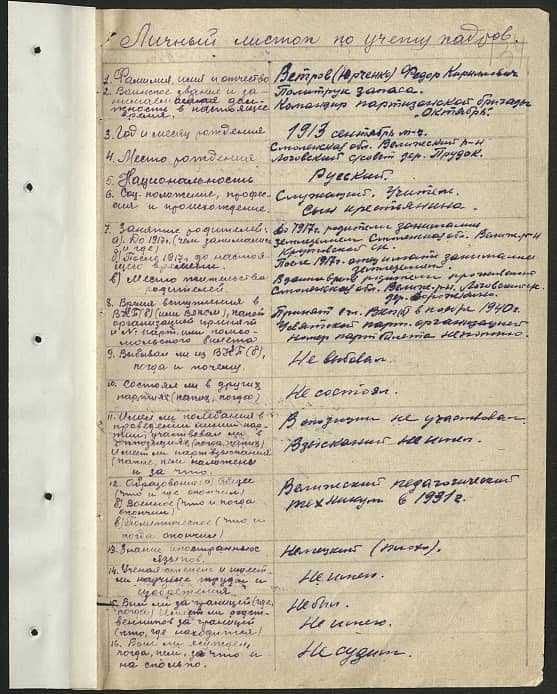 Личный листок по учету кадров.
1. Фамилия, имя и отчество
Ветров (Юрченко) Федор Кириллович
2. Воинское звание и за-
Политрук запаса.
нимаемая дол-
жность в настоящее
время.
Командир партизанской бригады
"Октябрь".
3. Год и месяц рождения
1913 сентябрь м-ц.
4. Место рождения
Смоленская обл. Велижский р-н
Логовский с/совет дер. Прудок.
5. Национальность
Русский.
6. Соц. положение, профес-
сия и происхождение.
Служащий. Учитель.
Сын крестьянина.
7. Занятие родителей:
а). До 1917г. (чем занимались
и где)
б) После 1917г. до настоя-
щее времени.
в) Место жительства
родителей.
До 1917г. родители занимались
земледелием Смоленская обл. Велиж. р-н
После 1917г. отец и мать занимались
земледелием.
родители проживают
Смоленская обл. Велиж. р-н. Логовский с-с
8. Время вступления в
ВКП(б) (или ВЛКСМ), какой
организацией принят
и № парт. или комсо-
мольского билета
Принят в чл. ВКП(б) в 1940г.
парт. организацией
номер партбилета не помню.
9. Выбывал ли из ВКП(б),
когда и почему.
Не выбывал.
10. Состоял ли в других
партиях (каких, когда)
Не состоял.
11. Имел ли колебания в
проведении линии пар-
тии, участвовал ли в
оппозициях (когда, каких)
имел ли партвзыскания
(какие, кем наложены
и за что.
В оппозиции не участвовал.
Взысканий не имел.
12. Образование: а) Общее
(что и где окончил)
б) Военное (что и когда
окончил)
в) Политическое (что и
когда окончил)
Велижский педагогический
техникум в 1931г.
13. Знание иностранных
языков.
Немецкий (плохо).
14. Ученая степень и имеет
ли научные труды и
изобретения.
Не имею.
15. Был ли за границей (где,
когда) Имеет ли родст-
венников за границей
(кто, где находится)
Не был.
Не имею.
16. Был ли судим,
когда, кем, за что и
на сколько.
Не судим.